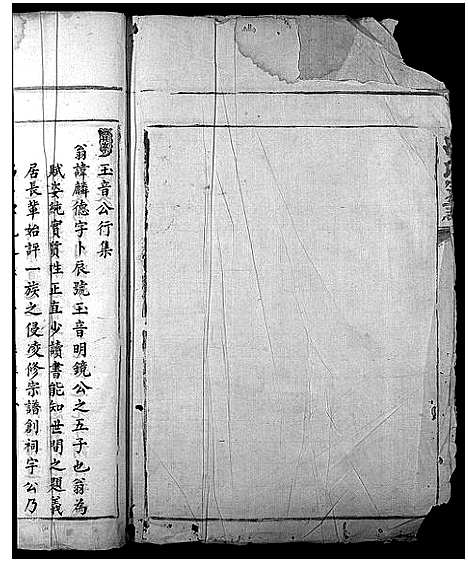 玉音公行集
翁諱麟德字卜辰號玉音明鏡公之五子也翁為
賦姿純實賢性正直少讀書能知世間之題義
居長輩始評一族之侵凌修宗譜創祠宇公乃